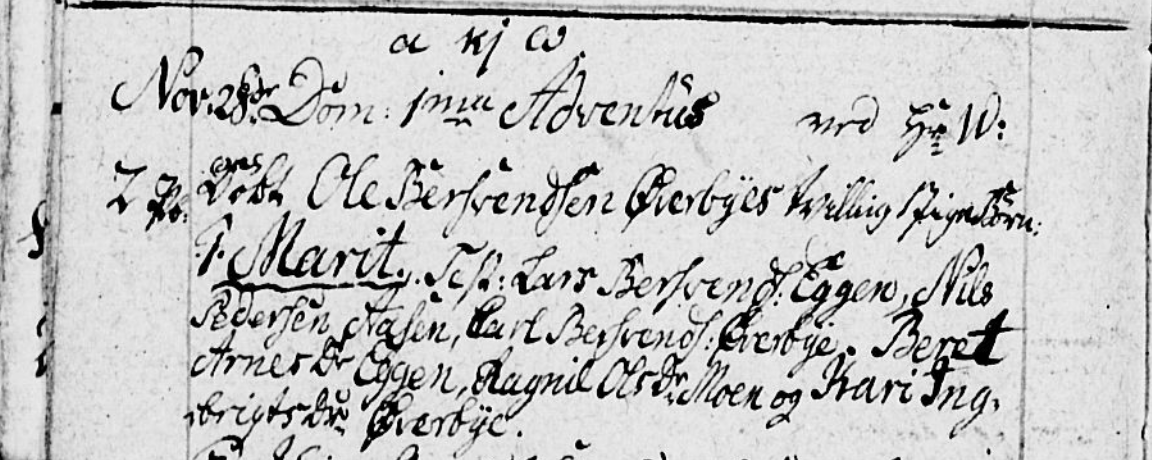 a kj w
Nov: 28de Dom: 1ma Adventûs ved Hr W:
2 Po. Døbt Ole Bersvendsen Øverbÿes tvilling Pigebørn:
1. Marit. Test: Lars Bersvends: Eggen, Nils
Pedersen Aasen, Carl Bersvends: Øverbÿe. Beret
Arnes Dr Eggen, Ragnil Ols Dr Moen og Kari Ing-
brigts Dr Øverbÿe.